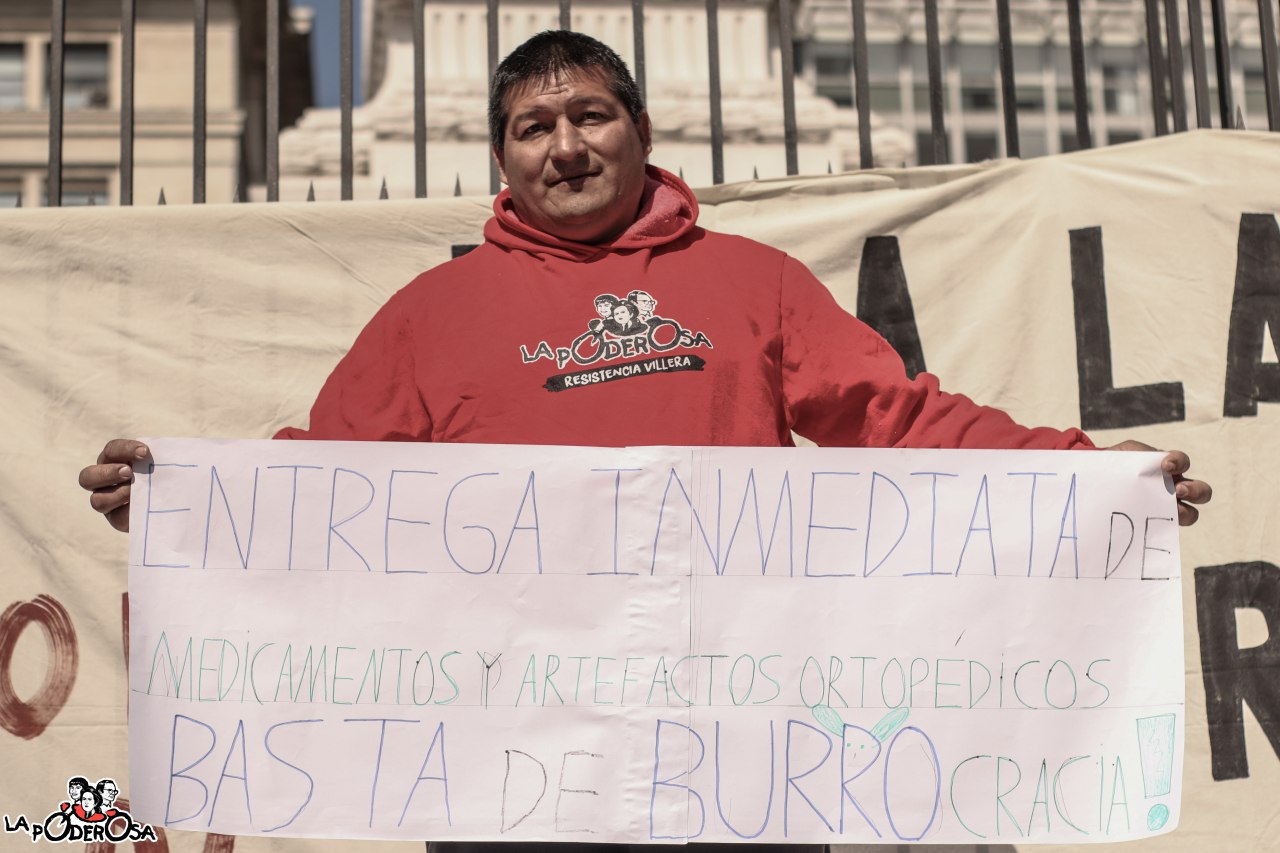 A LA
LA PODEROSA
RESISTENCIA VILLERA
ENTREGA INMEDIATA DE
MEDICAMENTOS Y ARTEFACTOS ORTOPÉDICOS
BASTA DE BURROCRACIA!
LA PODEROSA